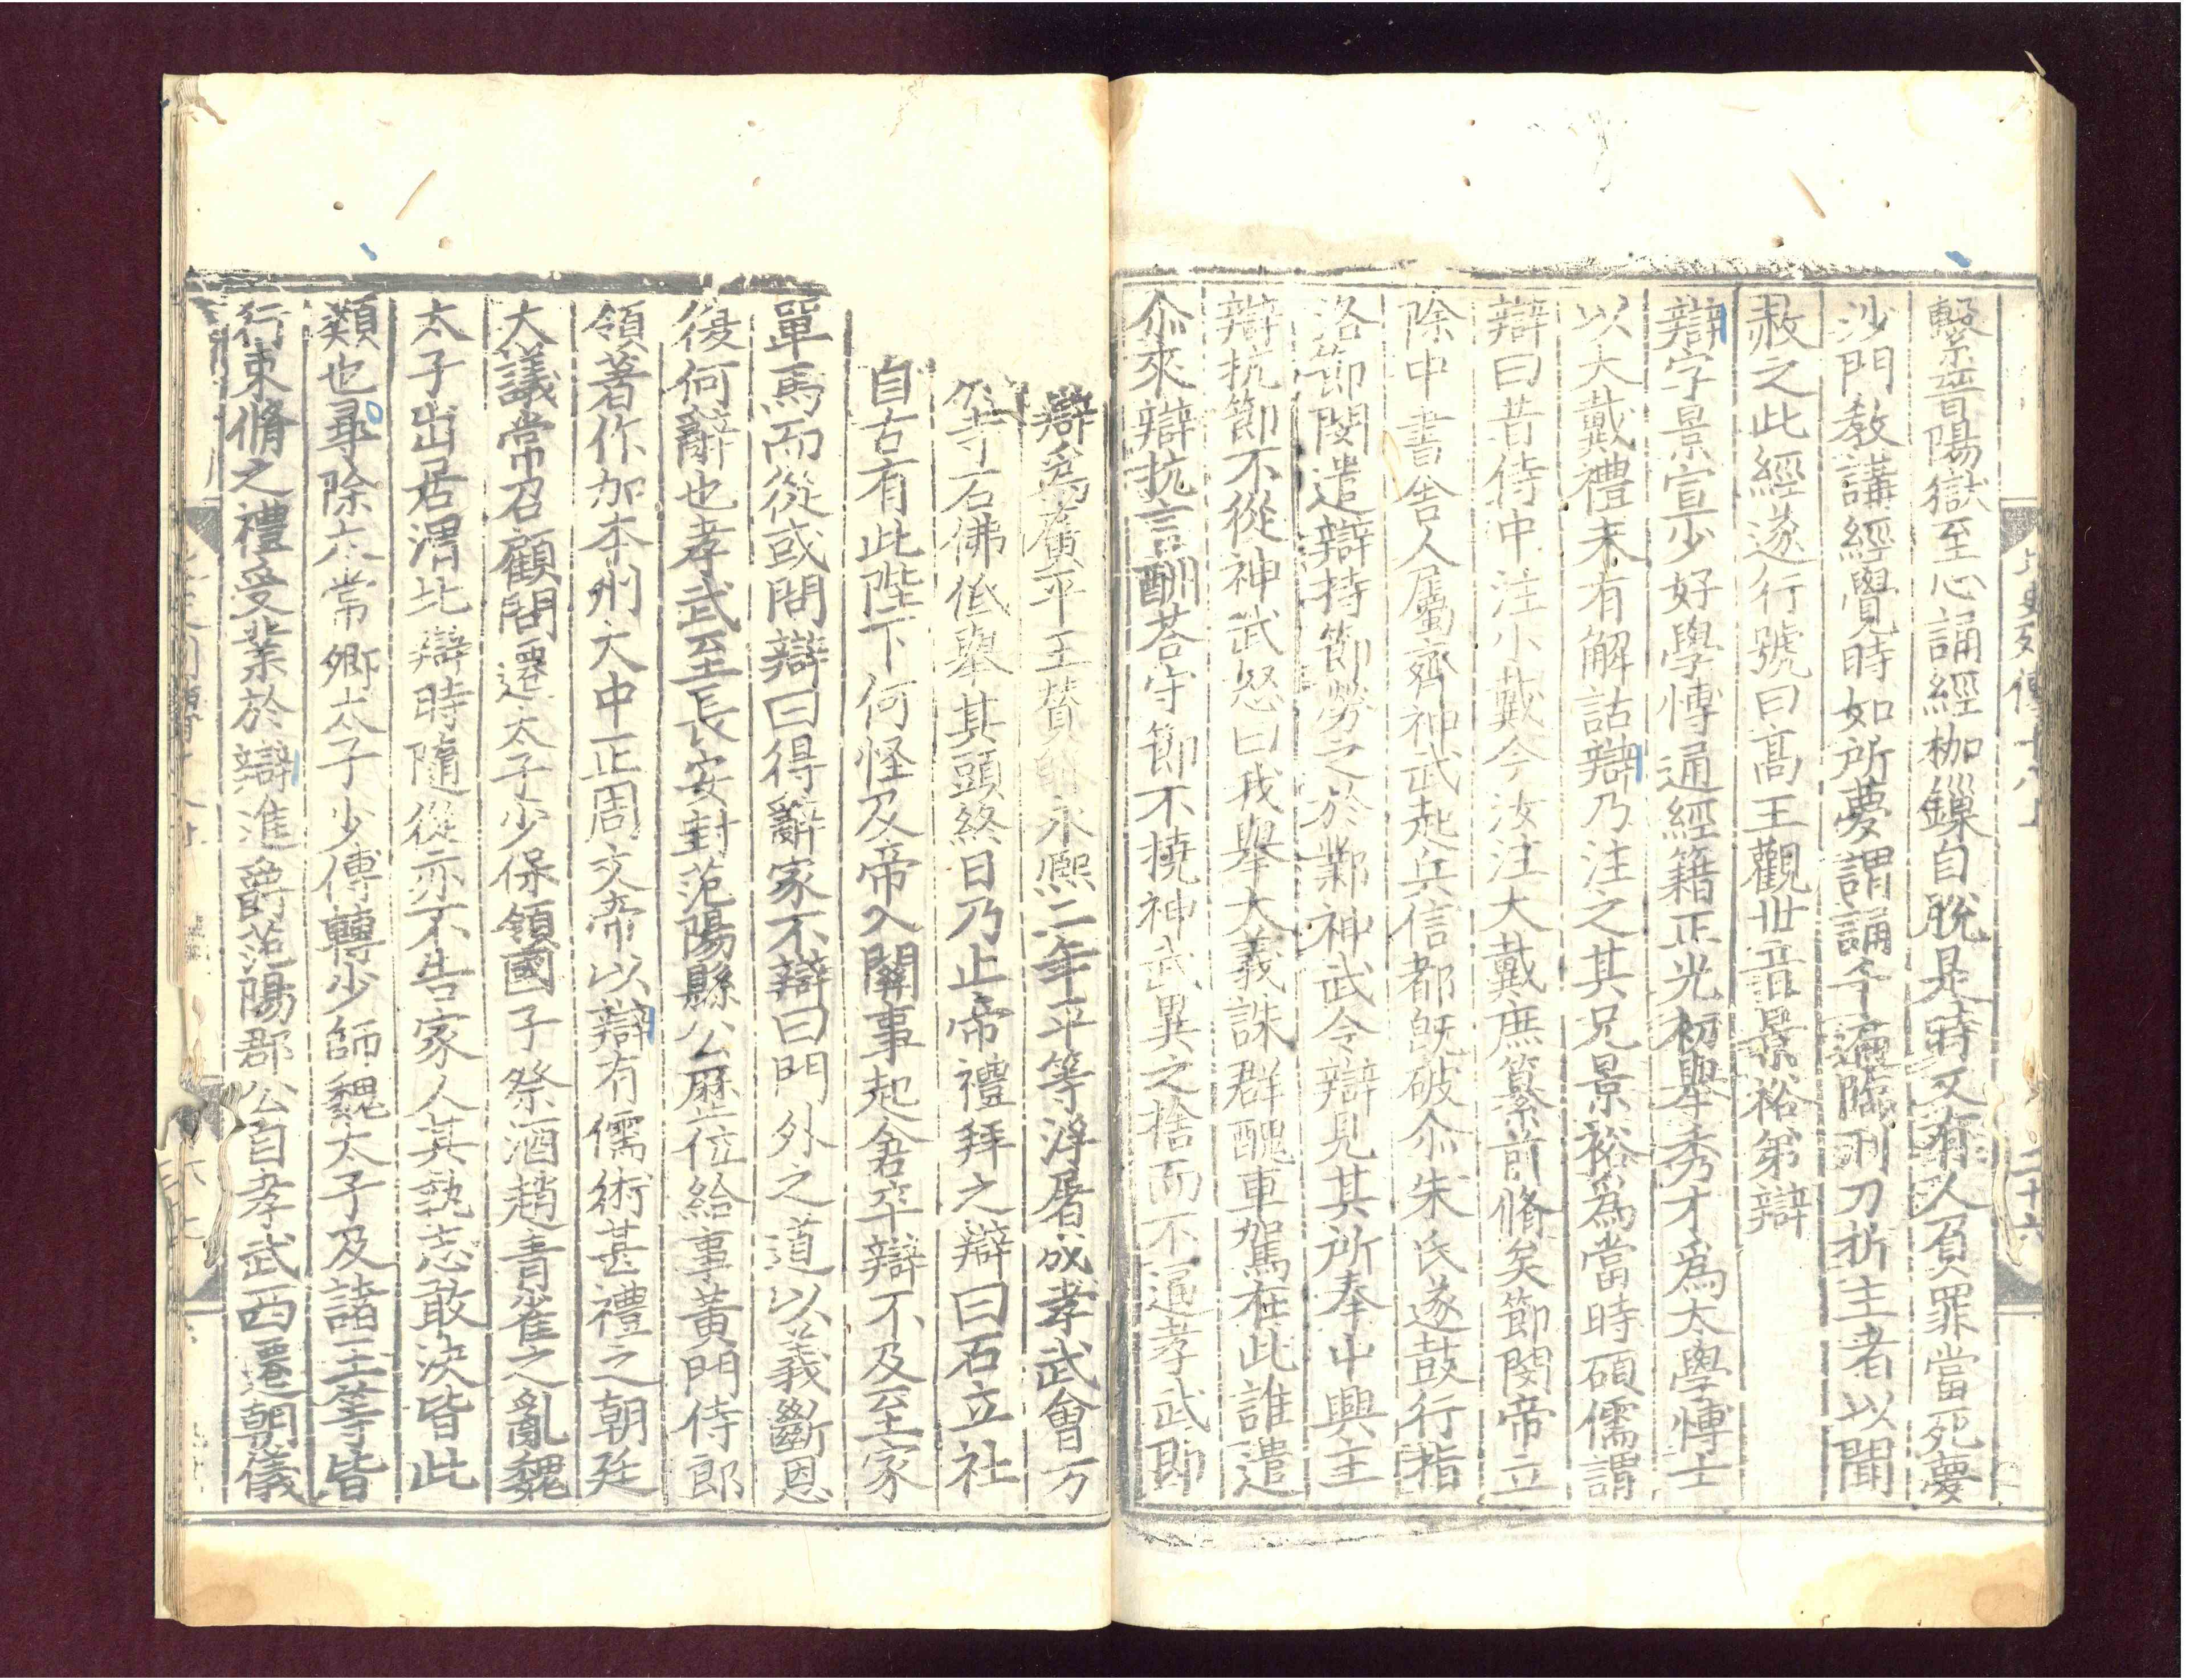 繫晉陽獄至心誦經枷鏁自脫是時又有人負罪當死夢
沙門教講經覺時如所夢謂誦千遍臨刑刀折主者以聞
赦之此經遂行號曰髙王觀世音景裕弟辯
辯字景宣少好學博通經籍正光初舉秀才爲太學博士
以大戴禮未有解詁辯乃注之其兄景裕爲當時碩儒謂
辯曰昔侍中注小戴今汝注大戴庶纂前脩矣節閔帝立
除中書舍人屬齊神武起兵信都旣破尒朱氏遂鼓行指
洛節閔遣辯持節勞之於鄴神武令辯見其所奉中興主
辯抗節不從神武怒曰我舉大義誅群醜車駕在此誰遣
尒來辯抗言酬荅守節不撓神武異之捨而不逼孝武即
辯爲廣平王贊 永熙二年平等浮屠成孝武會万
寺石佛低舉其頭終日乃止帝禮拜之辯曰石立社
自古有此陛下何怪及帝入關事起倉卒辯不及至家
單馬而從或問辯曰得辭家不辯曰門外之道以義斷恩
復何辭也孝武至長安封范陽縣公歷位給事黃門侍郎
領著作加本州大中正周文帝以辯有儒術甚禮之朝廷
大議常召顧問遷太子少保領國子祭酒趙青雀之亂魏
太子出居渭北辯時隨從亦不告家人其執志敢決皆此
類也尋除太常卿太子少傅轉少師魏太子及諸王等皆
行束脩之禮受業於辯進爵范陽郡公自孝武西遷朝儀